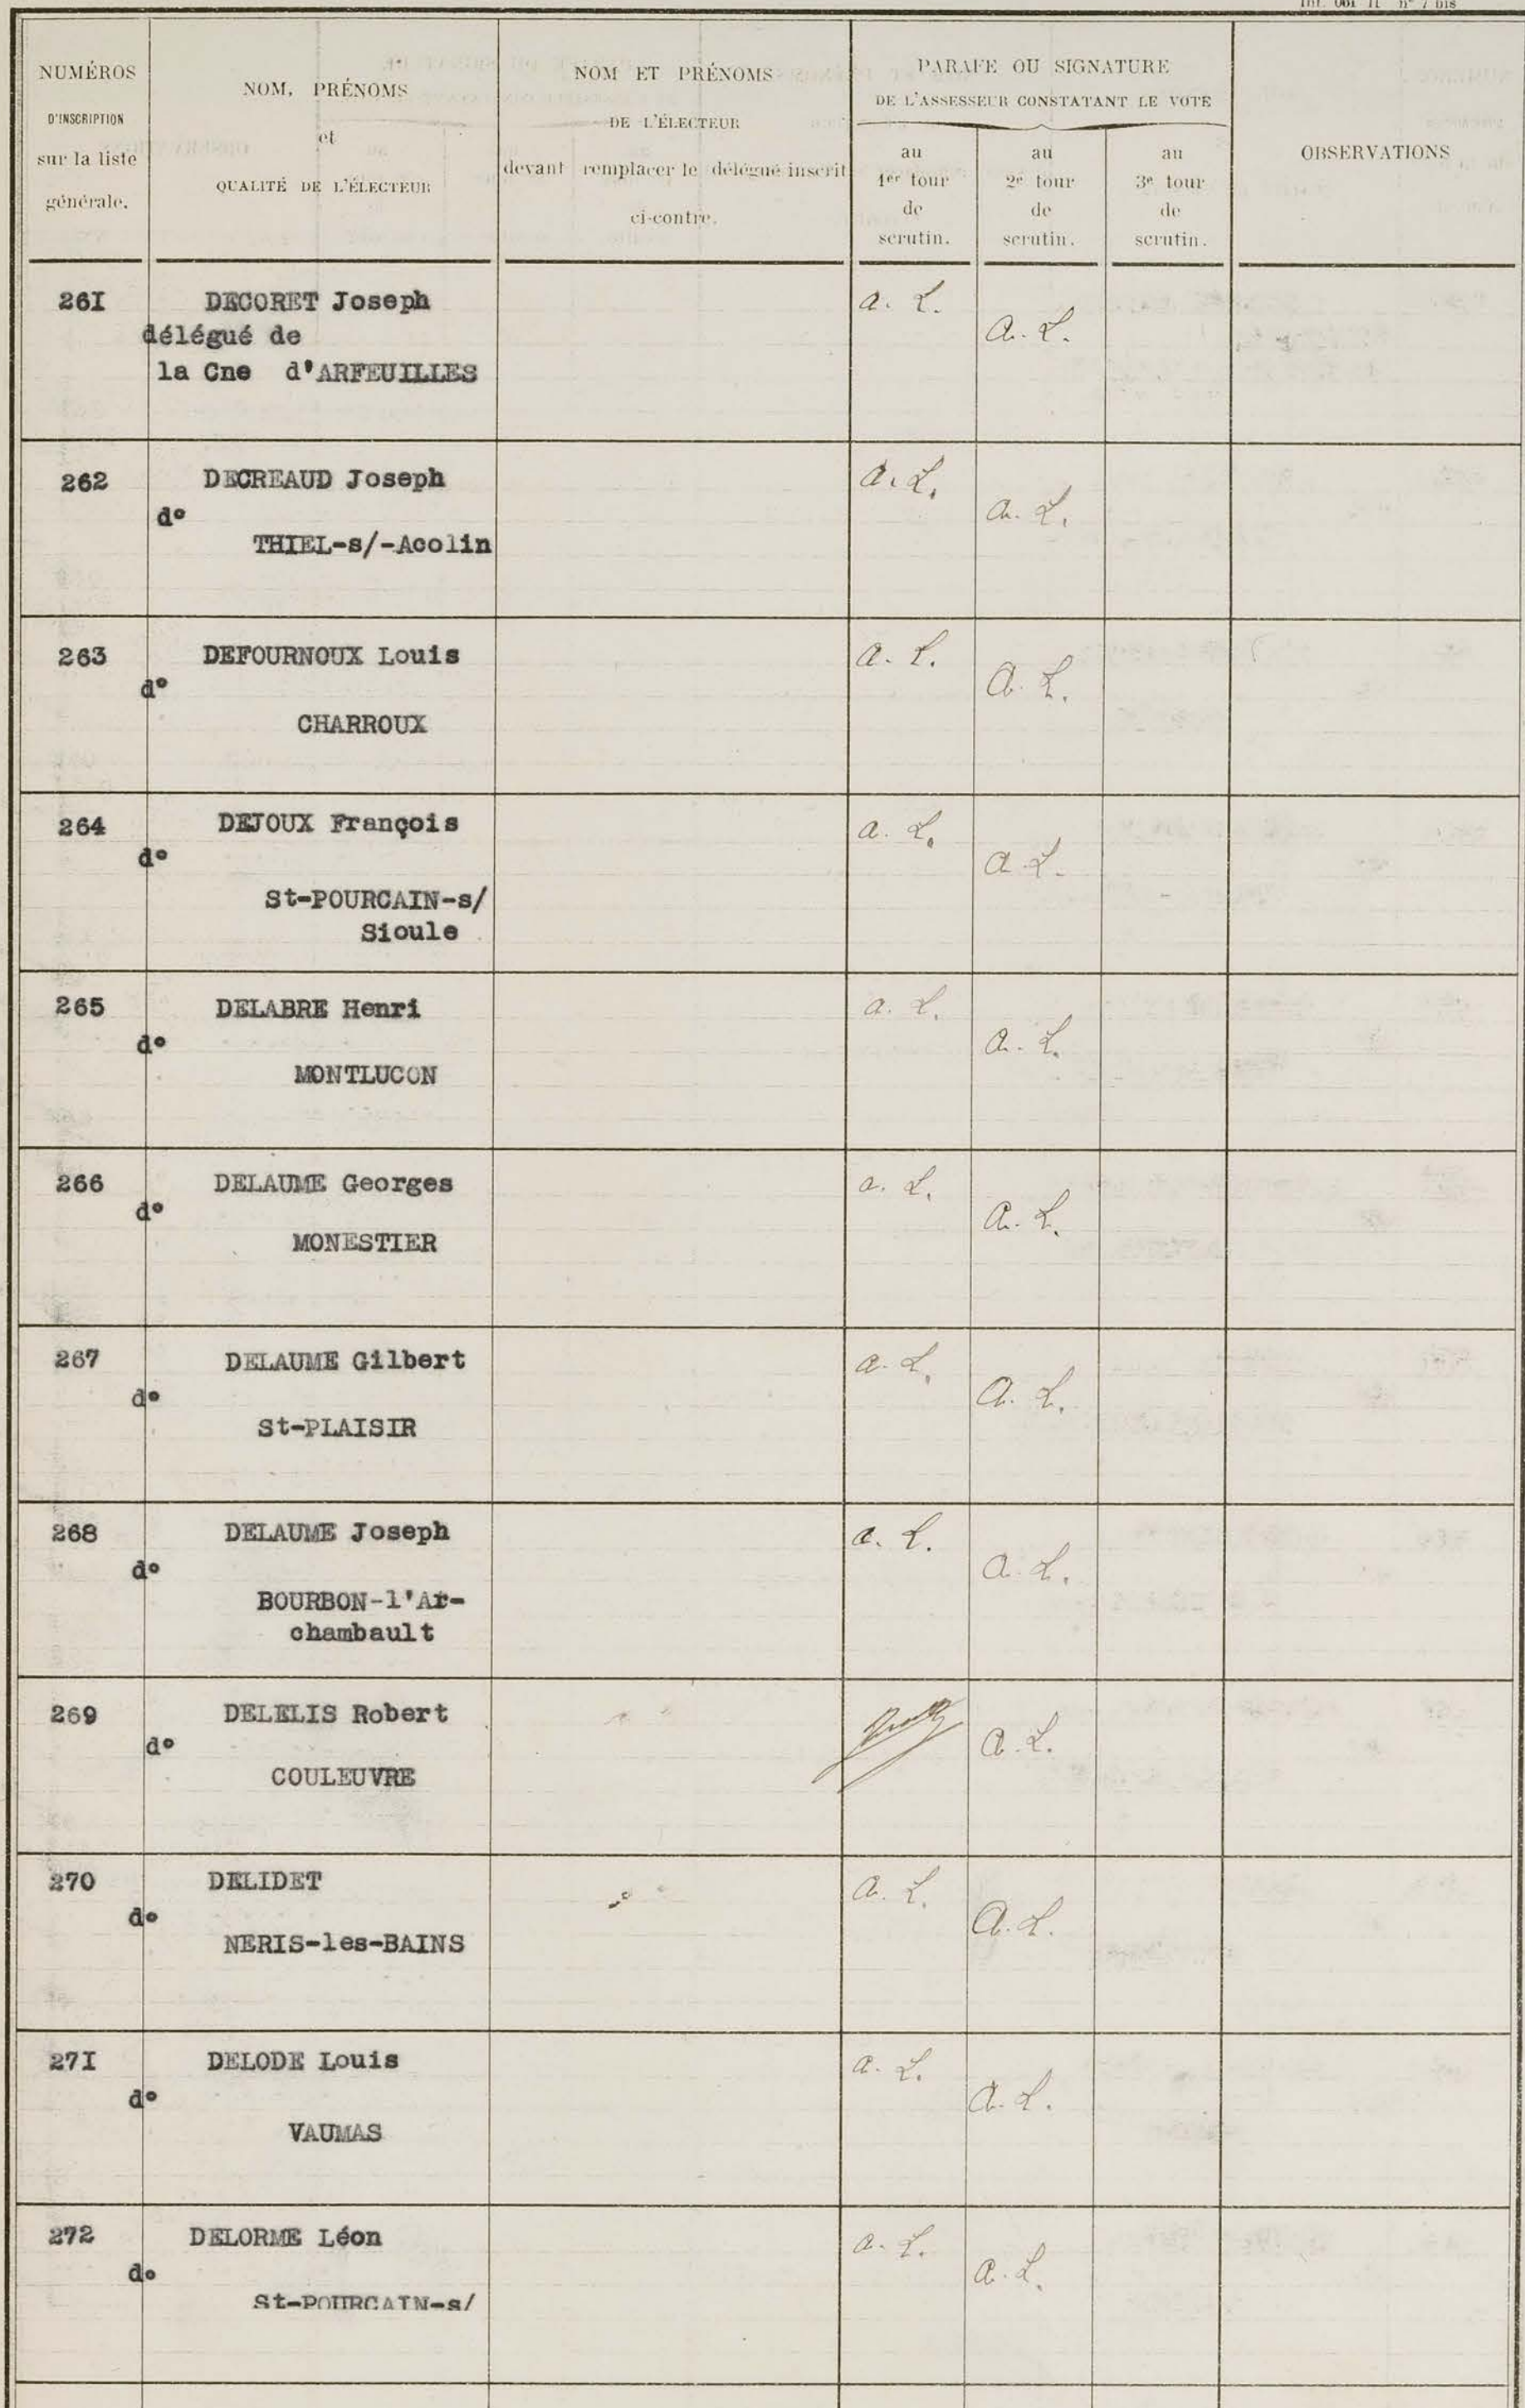 NUMÉROS
D'INSCRIPTION
sur la liste
générale.
NOM, PRÉNOMS
et
QUALITÉ DE L'ÉLECTEUR
NOM ET PRÉNOMS
DE L'ÉLECTEUR
devant remplacer le délégué inscrit
ci-contre.
PARAFE OU SIGNATURE
DE L'ASSESSEUR CONSTATANT LE VOTE
au
1er tour
de
scrutin.
au
2e tour
de
scrutin.
au
3e tour
de
scrutin.
OBSERVATIONS
26I DECORET Joseph a. L.
délégué de a. L.
la Cne d'ARFEUILLES
262 DECREAUD Joseph a. L.
d° a. L.
THIEL-s/-Acolin
263 DEFOURNOUX Louis a. L.
d° a. L.
CHARROUX
264 DEJOUX François a. L.
d° a. L.
St-POURCAIN-s/
Sioule
265 DELABRE Henri a. L.
d° a. L.
MONTLUCON
266 DELAUME Georges a. L.
d° a. L.
MONESTIER
267 DELAUME Gilbert a. L.
d° a. L.
St-PLAISIR
268 DELAUME Joseph a. L.
d° a. L.
BOURBON-l'Ar-
chambault
269 DELELIS Robert
d° a. L.
COULEUVRE
270 DELIDET a. L.
d° a. L.
NERIS-les-BAINS
27I DELODE Louis a. L.
d° a. L.
VAUMAS
272 DELORME Léon a. L.
d° a. L.
St-POURCAIN-s/